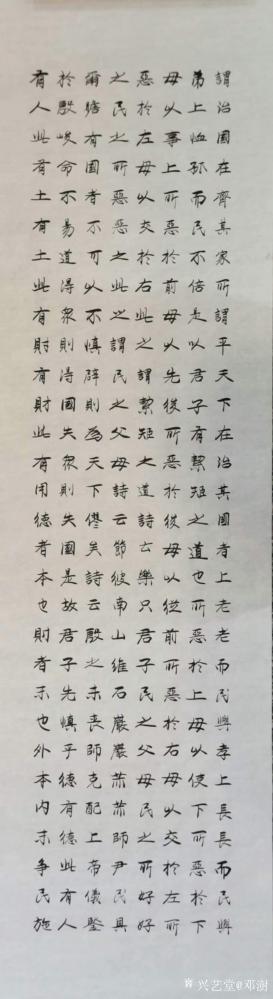 謂治國在齊其家所謂平天下在治其國者上老老而民興孝上長長而民興
弟上恤孤而民不倍是以君子有絜矩之道也所惡於上毋以使下所惡於下
毋以事上所惡於前毋以先後所惡於後毋以從前所惡於右毋以交於左所
惡於左毋以交於右此之謂絜矩之道詩云樂只君子民之父母民之所好好
之民之所惡惡之此之謂民之父母詩云節彼南山維石巖巖赫赫師尹民具
爾瞻有國者不可以不慎辟則為天下僇矣詩云殷之未喪師克配上帝儀監
於殷峻命不易道得眾則得國失眾則失國是故君子先慎乎德有德此有人
有人此有土有土此有財有財此有用德者本也財者末也外本內末爭民施
兴艺堂@邓澍